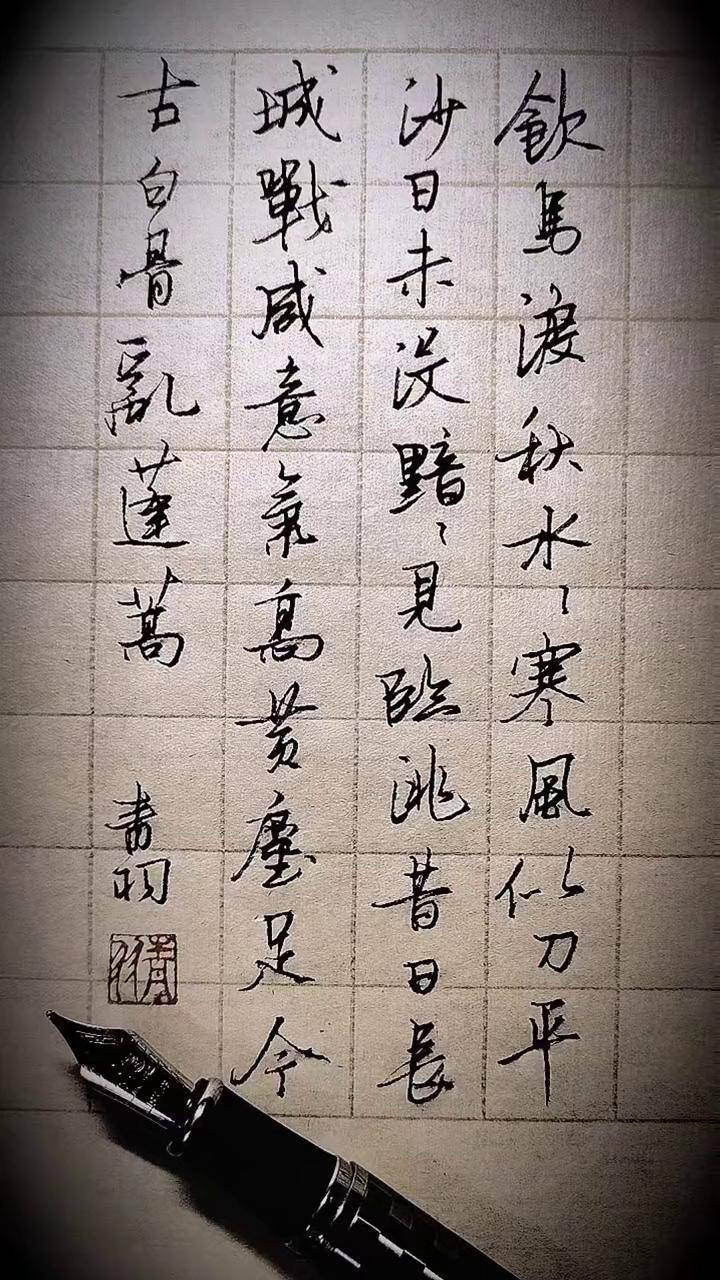 飲馬渡秋水〻寒風似刀平
沙日未没黯〻見臨洮昔日長
城戰咸意氣高黄塵足今
古白骨亂蓬蒿
青羽
青羽